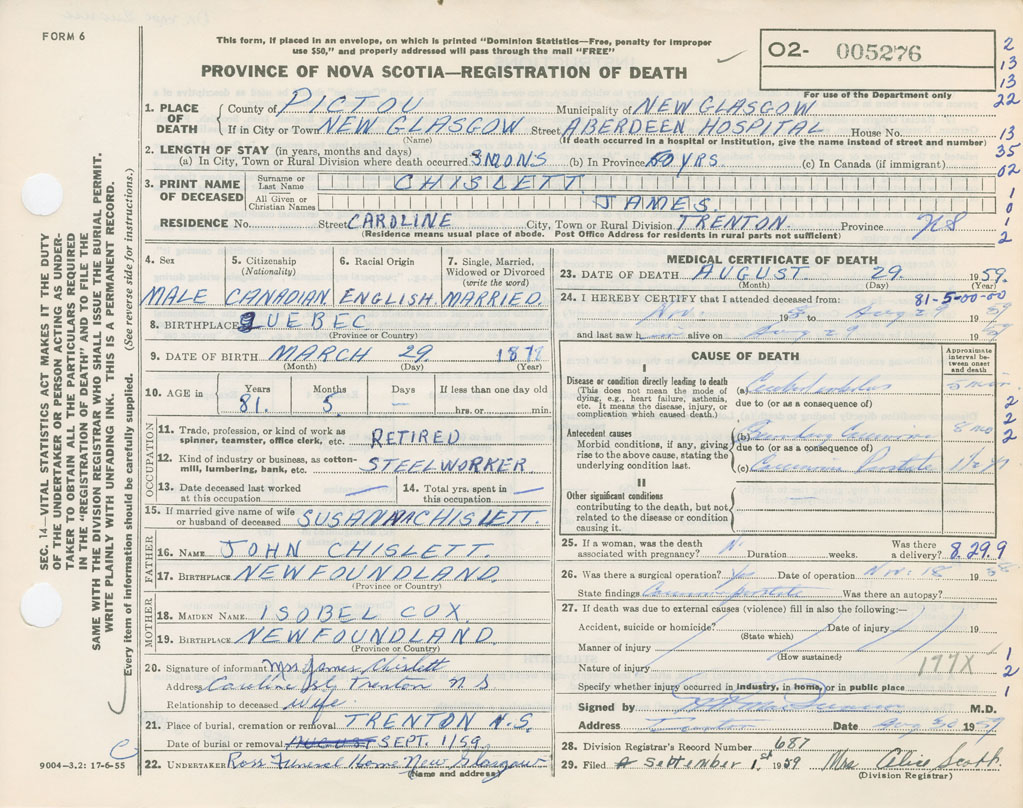 FORM 6
This form, if placed in an envelope, on which is printed "Dominion Statistics—Free, penalty for improper
use $50," and properly addressed will pass through the mail "FREE"
PROVINCE OF NOVA SCOTIA—REGISTRATION OF DEATH
O2- 005276
For use of the Department only
2
13
13
22
13
35
02
1
0
1
2
SEC. 14—VITAL STATISTICS ACT MAKES IT THE DUTY
OF THE UNDERTAKER OR PERSON ACTING AS UNDER-
TAKER TO OBTAIN ALL THE PARTICULARS REQUIRED
IN THE "REGISTRATION OF DEATH" AND TO FILE THE
SAME WITH THE DIVISION REGISTRAR WHO SHALL ISSUE THE BURIAL PERMIT.
WRITE PLAINLY WITH UNFADING INK. THIS IS A PERMANENT RECORD.
Every item of information should be carefully supplied. (See reverse side for instructions.)
1. PLACE OF DEATH County of PICTOU Municipality of NEW GLASGOW
If in City or Town NEW GLASGOW Street ABERDEEN HOSPITAL House No.
(Name) (If death occurred in a hospital or institution, give the name instead of street and number)
2. LENGTH OF STAY (in years, months and days)
(a) In City, Town or Rural Division where death occurred 3 MONS (b) In Province 50 YRS (c) In Canada (if immigrant)
3. PRINT NAME OF DECEASED Surname or Last Name CHISLETT
All Given or Christian Names JAMES
RESIDENCE No. Street CAROLINE City, Town or Rural Division TRENTON Province NS
(Residence means usual place of abode. Post Office Address for residents in rural parts not sufficient)
4. Sex 5. Citizenship (Nationality) 6. Racial Origin 7. Single, Married, Widowed or Divorced (write the word)
MALE CANADIAN ENGLISH MARRIED
8. BIRTHPLACE QUEBEC
(Province or Country)
9. DATE OF BIRTH MARCH 29 1878
(Month) (Day) (Year)
10. AGE in Years Months Days If less than one day old
81. 5. — hrs. or min.
OCCUPATION
11. Trade, profession, or kind of work as spinner, teamster, office clerk, etc. RETIRED
12. Kind of industry or business, as cotton-mill, lumbering, bank, etc. STEELWORKER
13. Date deceased last worked at this occupation — 14. Total yrs. spent in this occupation —
15. If married give name of wife or husband of deceased SUSANNA CHISLETT.
FATHER
16. NAME JOHN CHISLETT.
17. BIRTHPLACE NEWFOUNDLAND.
(Province or Country)
MOTHER
18. MAIDEN NAME ISOBEL COX.
19. BIRTHPLACE NEWFOUNDLAND.
(Province or Country)
20. Signature of informant Mrs James Chislett
Address Caroline St Trenton N S
Relationship to deceased Wife.
21. Place of burial, cremation or removal TRENTON N.S.
Date of burial or removal AUGUST SEPT. 1 1959.
22. UNDERTAKER Ross Funeral Home New Glasgow
(Name and address)
9004—3.2: 17-6-55
MEDICAL CERTIFICATE OF DEATH
23. DATE OF DEATH AUGUST 29. 1959.
(Month) (Day) (Year)
24. I HEREBY CERTIFY that I attended deceased from: 81-5-00-00
Nov. 1958 to Aug 29 1959
and last saw him alive on Aug 29 1959
CAUSE OF DEATH
Approximate interval between onset and death
I
Disease or condition directly leading to death
(This does not mean the mode of dying, e.g., heart failure, asthenia, etc. It means the disease, injury, or complication which caused death.)
(a) 5 min
due to (or as a consequence of)
Antecedent causes
Morbid conditions, if any, giving rise to the above cause, stating the underlying condition last.
(b) 8 mo
due to (or as a consequence of)
(c) Carcinoma Prostate 1 1/2 yr
2
2
2
II
Other significant conditions contributing to the death, but not related to the disease or condition causing it.
25. If a woman, was the death associated with pregnancy? Duration weeks. Was there a delivery? 8.29.9
26. Was there a surgical operation? Y Date of operation Nov. 18 1958
State findings Carcinoma prostate Was there an autopsy?
27. If death was due to external causes (violence) fill in also the following:—
Accident, suicide or homicide? Date of injury 19
(State which)
Manner of injury
(How sustained)
Nature of injury 177X
Specify whether injury occurred in industry, in home, or in public place
1
2
1
Signed by M.D.
Address Trenton Date Aug 30 1959
28. Division Registrar's Record Number 687
29. Filed September 1st 1959 Mrs Alice Scott
(Division Registrar)